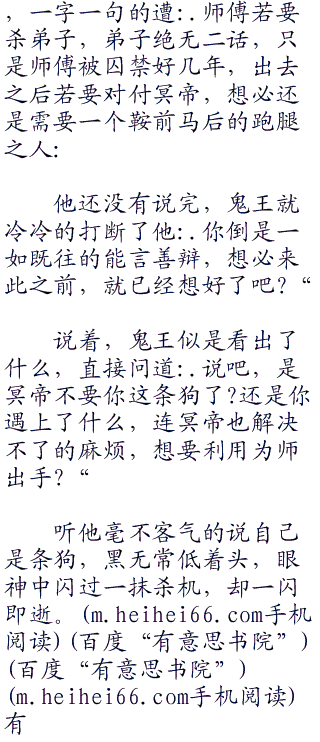 ，一字一句的遭:.师傅若要
杀弟子，弟子绝无二话，只
是师傅被囚禁好几年，出去
之后若要对付冥帝，想必还
是需要一个鞍前马后的跑腿
之人:
他还没有说完，鬼王就
冷冷的打断了他:.你倒是一
如既往的能言善辩，想必来
此之前，就已经想好了吧？“
说着，鬼王似是看出了
什么，直接问道:.说吧，是
冥帝不要你这条狗了?还是你
遇上了什么，连冥帝也解决
不了的麻烦，想要利用为师
出手？“
听他毫不客气的说自己
是条狗，黑无常低着头，眼
神中闪过一抹杀机，却一闪
即逝。(m.heihei66.com手机
阅读)(百度“有意思书院”)
(百度“有意思书院”)
(m.heihei66.com手机阅读)
有